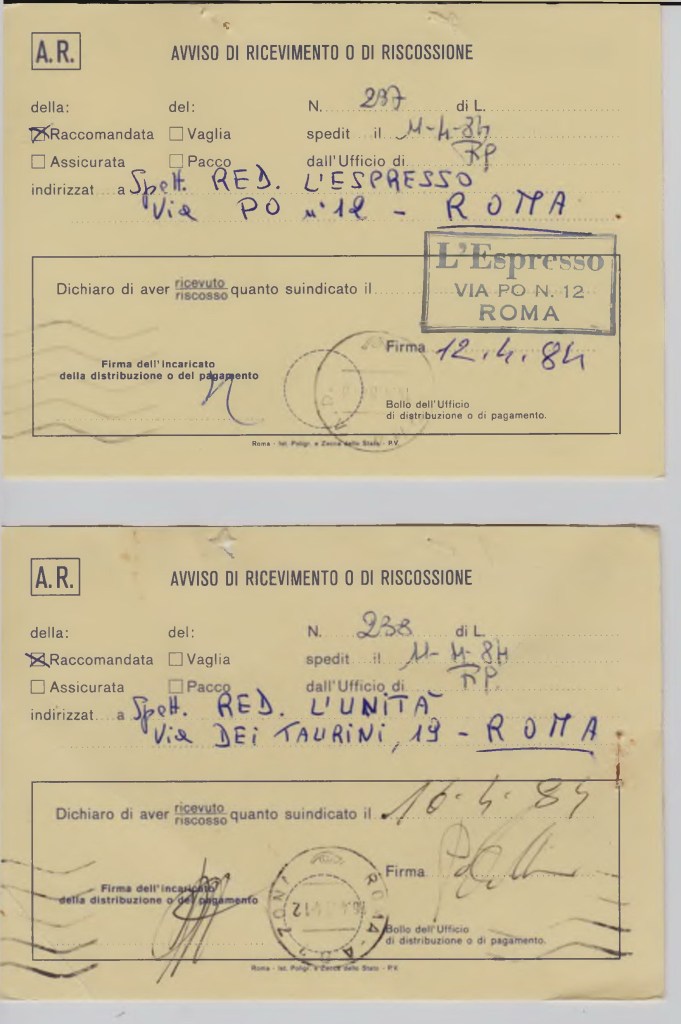 A.R. AVVISO DI RICEVIMENTO O DI RISCOSSIONE
della: del: N. 237 di L.
☒ Raccomandata ☐ Vaglia spedit il 11-4-84
☐ Assicurata ☐ Pacco dall'Ufficio di RP.
indirizzat a Spett. RED. L'ESPRESSO
Via PO n° 12 - ROMA
L'Espresso
VIA PO N. 12
ROMA
Dichiaro di aver ricevuto/riscosso quanto suindicato il
Firma 12.4.84
Firma dell'Incaricato
della distribuzione o del pagamento
Bollo dell'Ufficio
di distribuzione o di pagamento.
Roma - Ist. Poligr. e Zecca dello Stato - P.V.
A.R. AVVISO DI RICEVIMENTO O DI RISCOSSIONE
della: del: N. 238 di L.
☒ Raccomandata ☐ Vaglia spedit il 11-4-84
☐ Assicurata ☐ Pacco dall'Ufficio di RP.
indirizzat a Spett. RED. L'UNITÀ
Via DEI TAURINI, 19 - ROMA
Dichiaro di aver ricevuto/riscosso quanto suindicato il 16.4.84
Firma
Firma dell'incaricato
della distribuzione o del pagamento
ROMA-A.D. ZONA
Bollo dell'Ufficio
di distribuzione o di pagamento.
Roma - Ist. Poligr. e Zecca dello Stato - P.V.